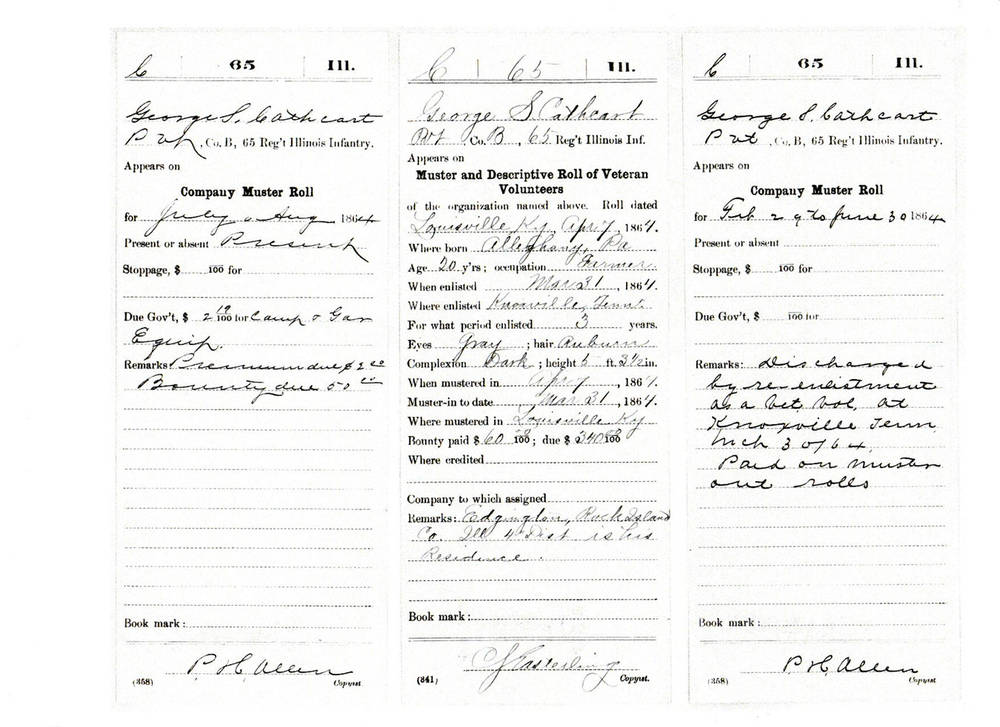 C | 65 | Ill.
George S. Cathcart
Pvt, Co. B, 65 Reg't Illinois Infantry.
Appears on
Company Muster Roll
for July & Aug 1864
Present or absent Present
Stoppage, $ 100 for
Due Gov't, $ 2 19/100 for Camp & Gar
Equip.
Remarks: Premium due $2.00
Bounty due 50.00
Book mark:
P. H. Allen
(358) Copyist.
C | 65 | Ill.
George S. Cathcart
Pvt Co. B, 65 Reg't Illinois Inf.
Appears on
Muster and Descriptive Roll of Veteran
Volunteers
of the organization named above. Roll dated
Louisville Ky, Apr 7, 1864.
Where born Alleghany, Pa
Age 20 y'rs; occupation Farmer
When enlisted Mar 31, 1864.
Where enlisted Knoxville, Tenn.
For what period enlisted 3 years.
Eyes Gray; hair Auburn
Complexion Dark; height 5 ft. 3½ in.
When mustered in Apr 7, 1864.
Muster-in to date Mar 31, 1864.
Where mustered in Louisville Ky
Bounty paid $ 60 100; due $ 340 100
Where credited
Company to which assigned
Remarks: Edgington, Rock Island
Co. Ill 4" Dist is his
Residence.
Book mark:
C J Easterling
(341) Copyist.
C | 65 | Ill.
George S. Cathcart
Pvt, Co. B, 65 Reg't Illinois Infantry.
Appears on
Company Muster Roll
for Feb 29 to June 30 1864
Present or absent
Stoppage, $ 100 for
Due Gov't, $ 100 for
Remarks: Discharged
by re-enlistment
as a vet vol. at
Knoxville Tenn
Mch 30/64.
Paid on muster
out rolls
Book mark:
P. H. Allen
(358) Copyist.